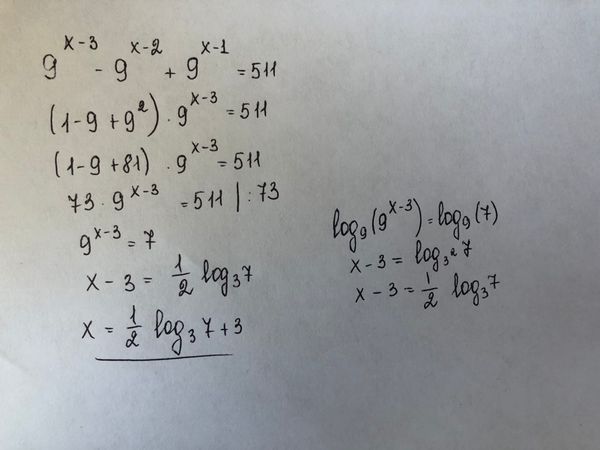 9^{x-3} - 9^{x-2} + 9^{x-1} = 511
(1-9+9^2) · 9^{x-3} = 511
(1-9+81) · 9^{x-3} = 511
73 · 9^{x-3} = 511 | : 73
9^{x-3} = 7
x - 3 = \frac{1}{2} log_3 7
x = \frac{1}{2} log_3 7 + 3
log_9 (9^{x-3}) = log_9 (7)
x - 3 = log_{3^2} 7
x - 3 = \frac{1}{2} log_3 7